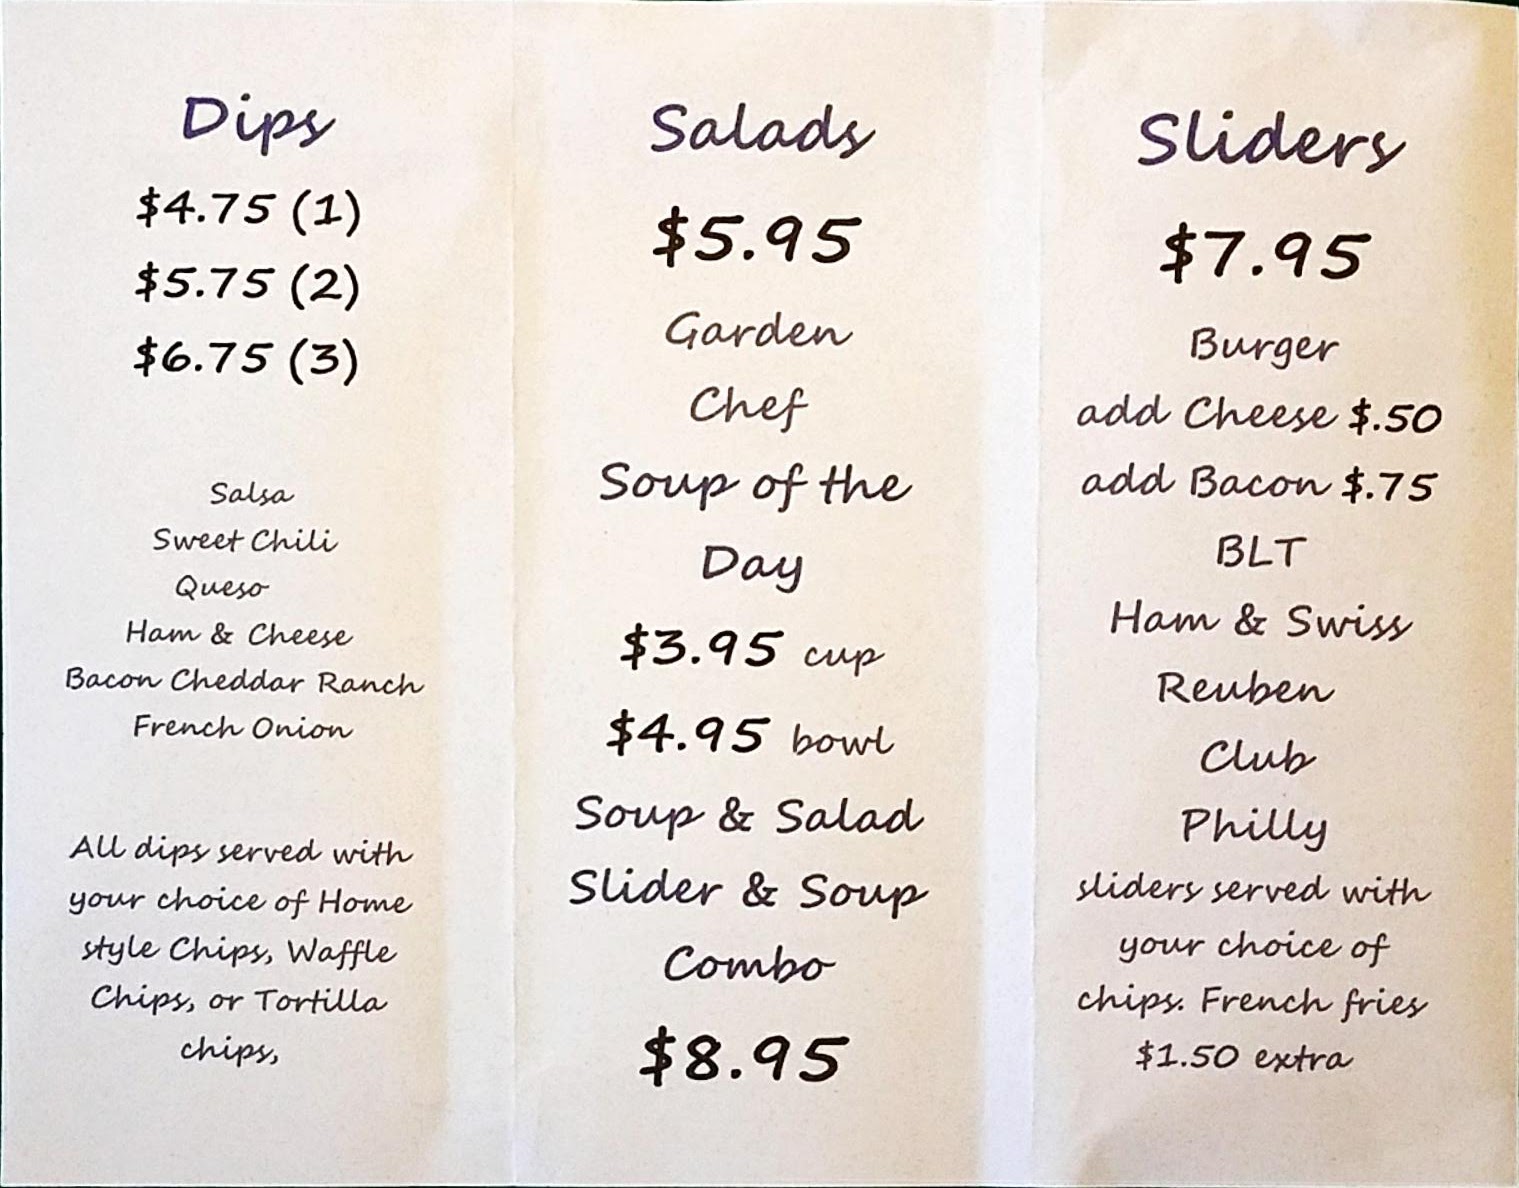 Dips
$4.75 (1)
$5.75 (2)
$6.75 (3)
Salsa
Sweet Chili
Queso
Ham & Cheese
Bacon Cheddar Ranch
French Onion
All dips served with
your choice of Home
style Chips, Waffle
Chips, or Tortilla
chips,
Salads
$5.95
Garden
Chef
Soup of the
Day
$3.95 cup
$4.95 bowl
Soup & Salad
Slider & Soup
Combo
$8.95
Sliders
$7.95
Burger
add Cheese $.50
add Bacon $.75
BLT
Ham & Swiss
Reuben
Club
Philly
sliders served with
your choice of
chips. French fries
$1.50 extra